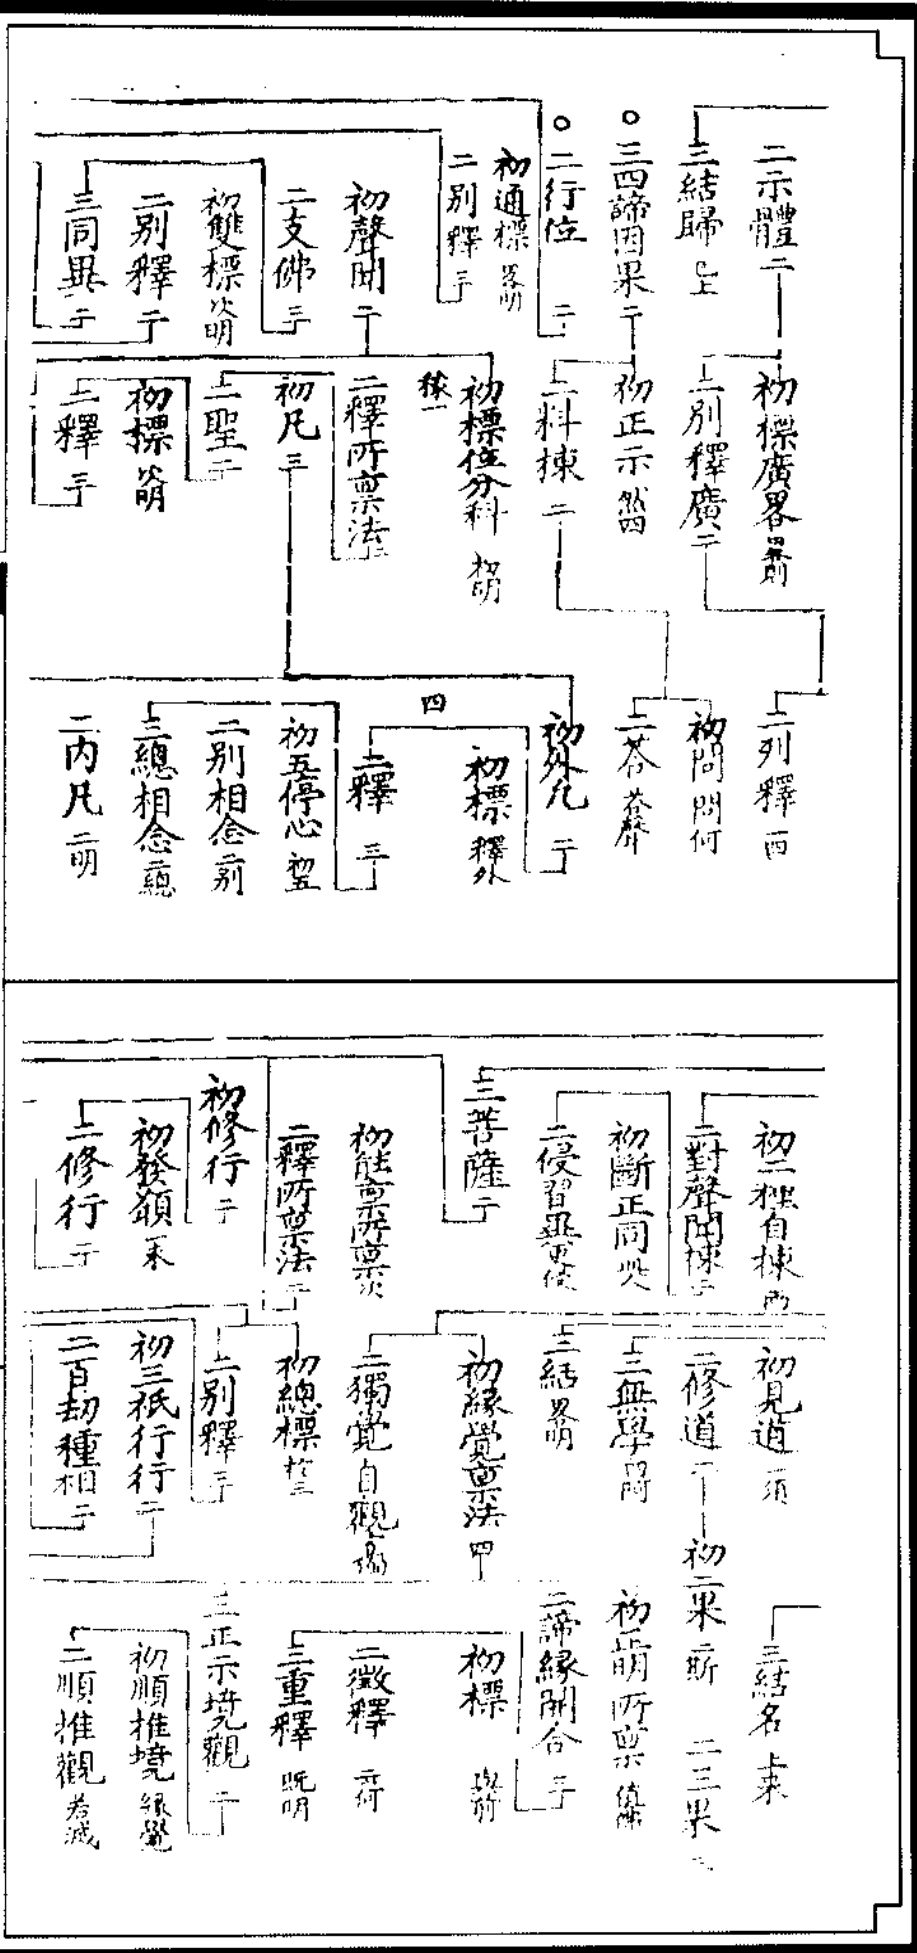 二示體 二
三結歸 已上
三四諦因果 二
二行位 二
初通標 畧明
二別釋 三
初聲聞 二
二支佛 三
初雙標 次明
二別釋 二
三同異 二
初標廣畧
二別釋廣 二
初正示 然四
二料揀 二
初標位分科 初明
二釋所稟法 二
初凡 三
二聖 二
初標 次明
二釋 三
二列釋 四
初問 問何
二荅 荅聲
初外凡 二
初標 釋外
四
二釋 三
初五停心 初五
二別相念 二別
三總相念 三總
二內凡 二明
初二猶自揀 
二對聲聞揀 二
初斷正同 此人
二侵習異
三菩薩 二
初能稟所稟 次
二釋所稟法 二
初修行 二
初發願 
二修行 二
初見道 須
二修道 二
三無學
三結 畧明
初緣覺稟法 四
二獨覺 自觀
初總標
二別釋 三
初三祇行行 二
二百劫種相 二
三結名
初二果 二斯
二三果
初萌所稟
二諦緣開合 三
初標
二徵釋 云何
三重釋 既明
三正示境觀 二
初順推境 緣覺
二順推觀 若滅